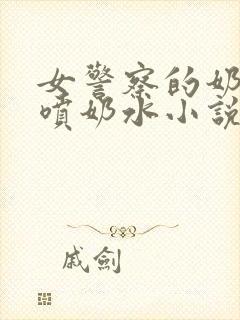 女警察的奶
噴奶水小説
戚劍